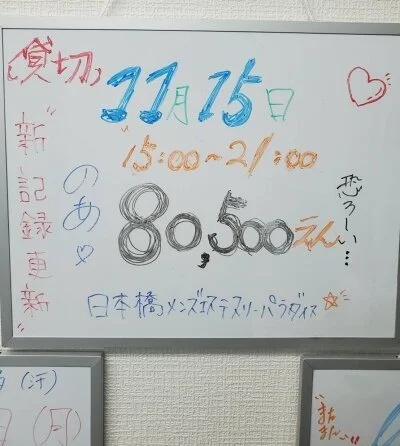 貸切
11月15日
"新記録更新"
15:00~21:00
のあ♡
80,500えん
恐ろしい…
日本橋メンズエステスリーパラダイス☆
(汗)
(月)
"また